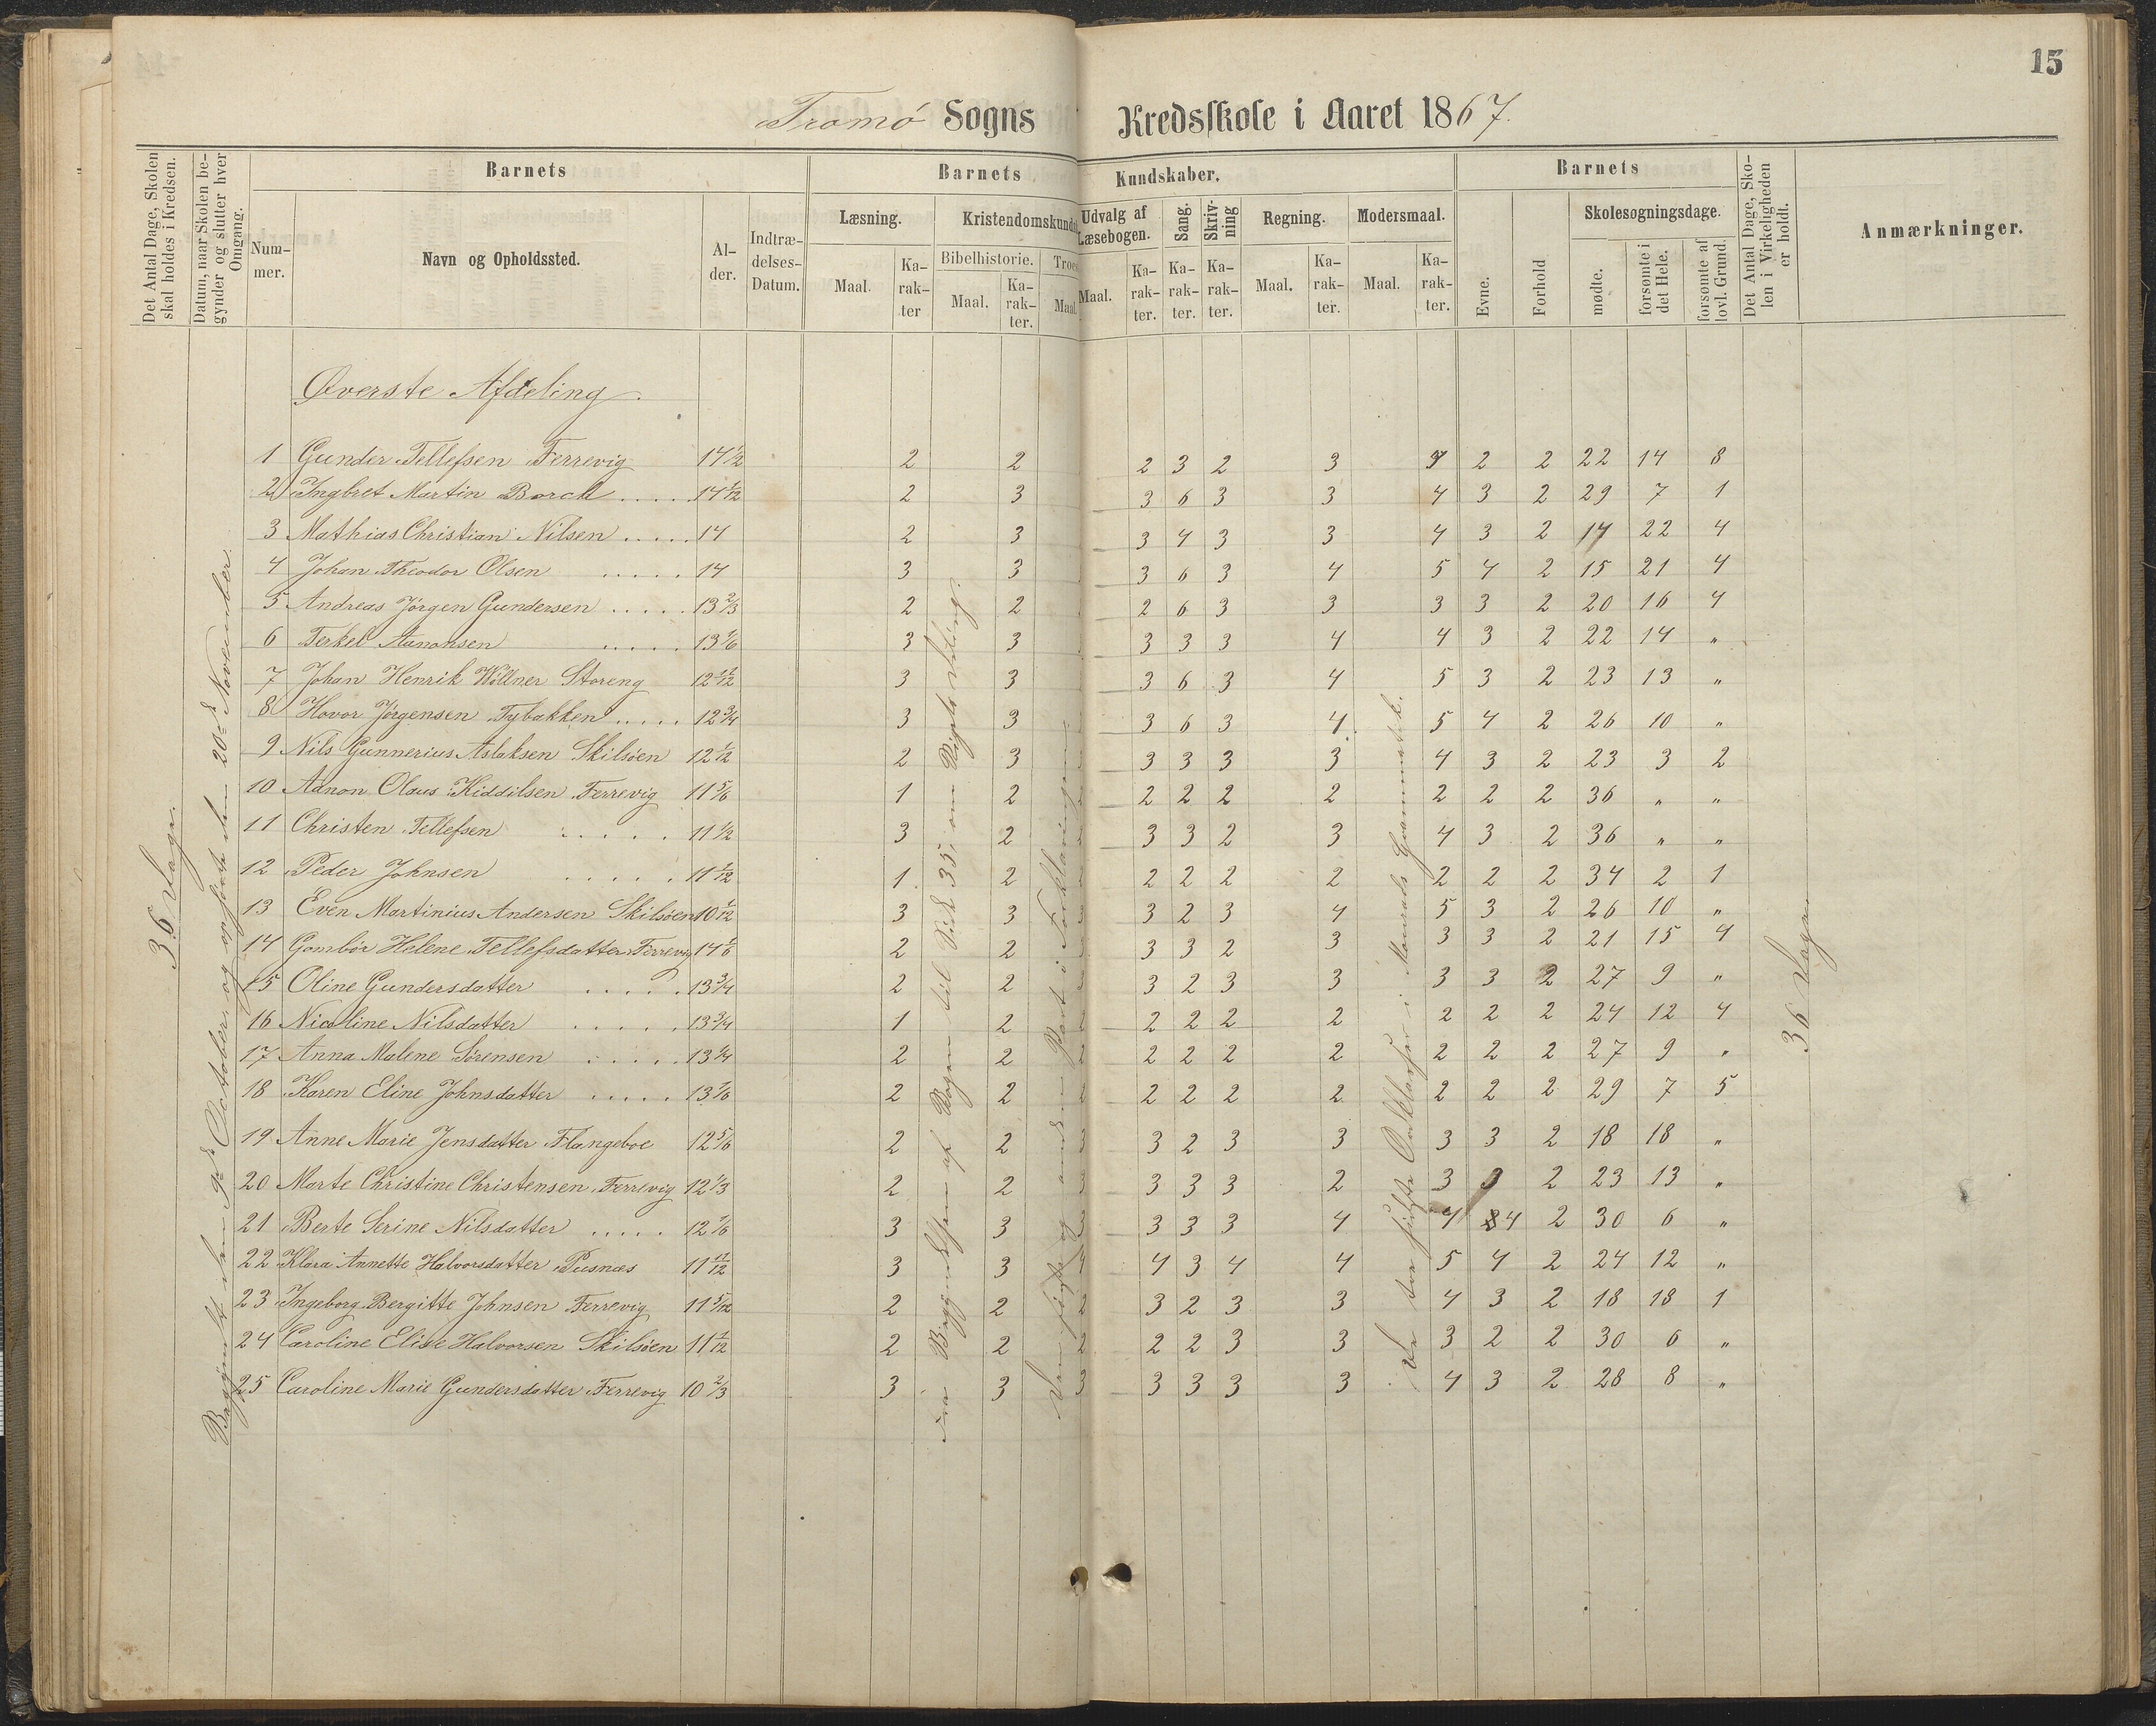 15
Tromö Sogns Kredsskole i Aaret 1867.
Det Antal Dage, Skolen skal holdes i Kredsen.
Datum, naar Skolen begynder og slutter hver Omgang.
Barnets
Nummer.
Navn og Opholdssted.
Alder.
Indtrædelses-Datum.
Barnets Kundskaber.
Læsning.
Maal. Karakter
Kristendomskund
Bibelhistorie. Troes
Maal. Karakter. Maal.
Udvalg af Læsebogen.
Maal. Karakter.
Sang. Karakter.
Skrivning Karakter.
Regning.
Maal. Karakter.
Modersmaal.
Maal. Karakter.
Barnets
Evne. Forhold
Skolesøgningsdage.
mødte. forsømte i det Hele. forsømte af lovl. Grund.
Det Antal Dage, Skolen i Virkeligheden er holdt.
Anmærkninger.
36 Dage.
Begyndt den October og ophørt den 20de November.
Øverste Afdeling.
1 Gunder Tellefsen Færrevig 14 1/2 2 2 2 3 2 3 2 2 22 14 8
2 Ingbret Martin Borch ..... 14 1/12 2 3 3 6 3 3 4 3 2 29 7 1
3 Mathias Christian Nilsen ..... 14 2 3 3 4 3 3 4 3 2 14 22 4
4 Johan Theodor Olsen ..... 14 3 3 3 6 3 4 5 4 2 15 21 4
5 Andreas Jørgen Gundersen ..... 13 2/3 2 2 2 6 3 3 3 3 2 20 16 4
6 Terkel Aanonsen ..... 13 1/6 3 3 3 3 3 4 4 3 2 22 14 "
7 Johan Henrik Wöllner Storeng 12 11/12 3 3 3 6 3 4 5 3 2 23 13 "
8 Hovor Jørgensen Tybakken ..... 12 3/4 3 3 3 6 3 4 5 4 2 26 10 "
9 Nils Gunnerius Aslaksen Skilsöen 12 1/12 2 3 3 3 3 3 4 3 2 23 3 2
10 Aanon Olaus Kiddilsen Færrevig 11 5/6 1 2 2 2 2 2 2 2 2 36 " "
11 Christen Tellefsen ..... 11 1/2 3 2 3 3 2 3 4 3 2 36 " "
12 Peder Johnsen ..... 11 1/12 1 2 2 2 2 2 2 2 2 34 2 1
13 Even Martinius Andersen Skilsöen 10 1/12 3 3 3 3 2 3 4 5 3 2 26 10 "
14 Gombör Helene Tellefsdatter Færrevig 14 1/6 2 2 3 3 2 3 3 3 2 21 15 4
15 Oline Gundersdatter ..... 13 3/4 2 2 3 2 3 3 3 3 2 27 9 "
16 Nicoline Nilsdatter ..... 13 3/4 1 2 2 2 2 2 2 2 2 2 24 12 4
17 Anna Malene Sørensen ..... 13 1/4 2 2 2 2 2 2 2 2 2 2 27 9 "
18 Karen Eline Johnsdatter ..... 13 1/6 2 2 2 2 2 2 2 2 2 2 29 7 5
19 Anne Marie Jensdatter Flangeboe 12 5/6 2 2 3 3 2 3 3 3 3 2 18 18 "
20 Marte Christine Christensen Færrevig 12 1/3 2 2 3 3 3 3 2 3 2 23 13 "
21 Berte Serine Nilsdatter ..... 12 1/6 3 3 3 3 3 3 4 4 4 2 30 6 "
22 Klara Annette Halvorsdatter Pusnæs 11 11/12 3 3 4 4 3 4 4 5 4 2 24 12 "
23 Ingeborg Bergitte Johnsen Færrevig 11 5/12 2 2 2 3 2 3 3 4 3 2 18 18 1
24 Caroline Elise Halvorsen Skilsöen 11 1/12 2 2 2 2 2 3 3 3 2 2 30 6 "
25 Caroline Marie Gundersdatter Færrevig 10 2/3 3 3 3 3 3 3 3 4 3 2 28 8 "
Fra Begyndelsen af Bogen til Side 35, om
Den første og anden Part i Forklaringen
De tre første Ordklasser i Grammatik.
36 Dage